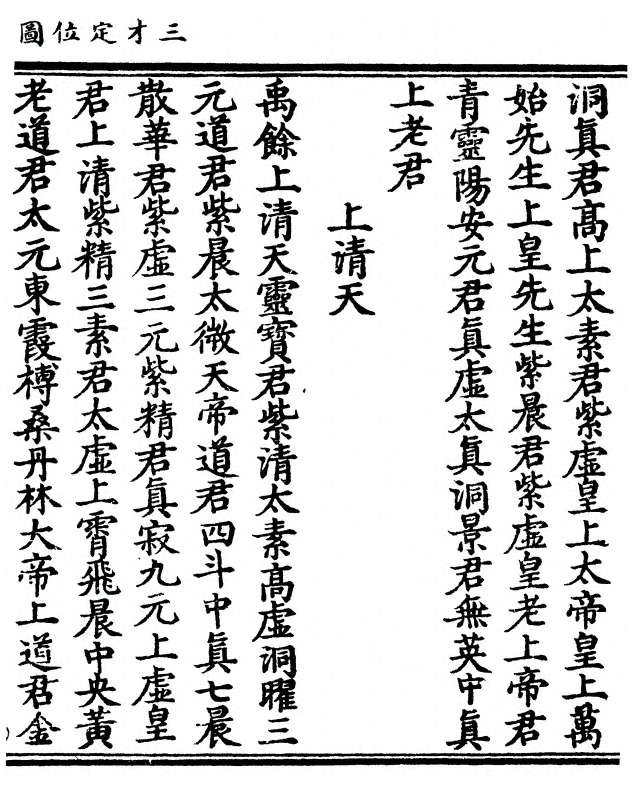 三才定位圖
洞真君高上太素君紫虛皇上太帝皇上萬
始先生上皇先生紫晨君紫虛皇老上帝君
青靈陽安元君真虛太真洞景君無英中真
上老君
上清天
禹餘上清天靈寶君紫清太素高虛洞曜三
元道君紫晨太微天帝道君四斗中真七晨
散華君紫虛三元紫精君真寂九元上虛皇
君上清紫精三素君太虛上霄飛晨中央黃
老道君太元東霞榑桑丹林大帝上道君金